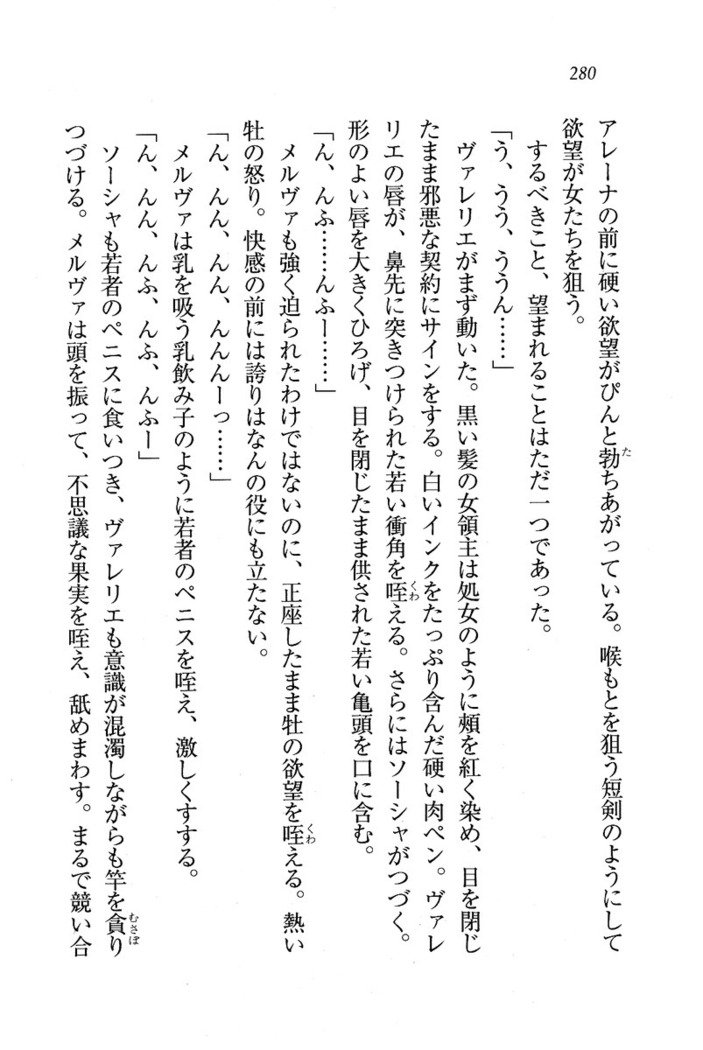 280
アレーナの前に硬い欲望がぴんと勃ちあがっている。喉もとを狙う短剣のようにして
欲望が女たちを狙う。
するべきこと、望まれることはただ一つであった。
「う、うう、ううん……」
ヴァレリエがまず動いた。黒い髪の女領主は処女のように頰を紅く染め、目を閉じ
たまま邪悪な契約にサインをする。白いインクをたっぷり含んだ硬い肉ペン。ヴァレ
リエの唇が、鼻先に突きつけられた若い衝角を咥える。さらにはソーシャがつづく。
形のよい唇を大きくひろげ、目を閉じたまま供された若い亀頭を口に含む。
「ん、んふ……んふー……」
メルヴァも強く迫られたわけではないのに、正座したまま牡の欲望を咥える。熱い
牡の怒り。快感の前には誇りはなんの役にも立たない。
「ん、んん、んん、んんんーっ……」
メルヴァは乳を吸う乳飲み子のように若者のペニスを咥え、激しくすする。
「ん、んん、んふ、んふ、んふー」
ソーシャも若者のペニスに食いつき、ヴァレリエも意識が混濁しながらも竿を貪り
つづける。メルヴァは頭を振って、不思議な果実を咥え、舐めまわす。まるで競い合